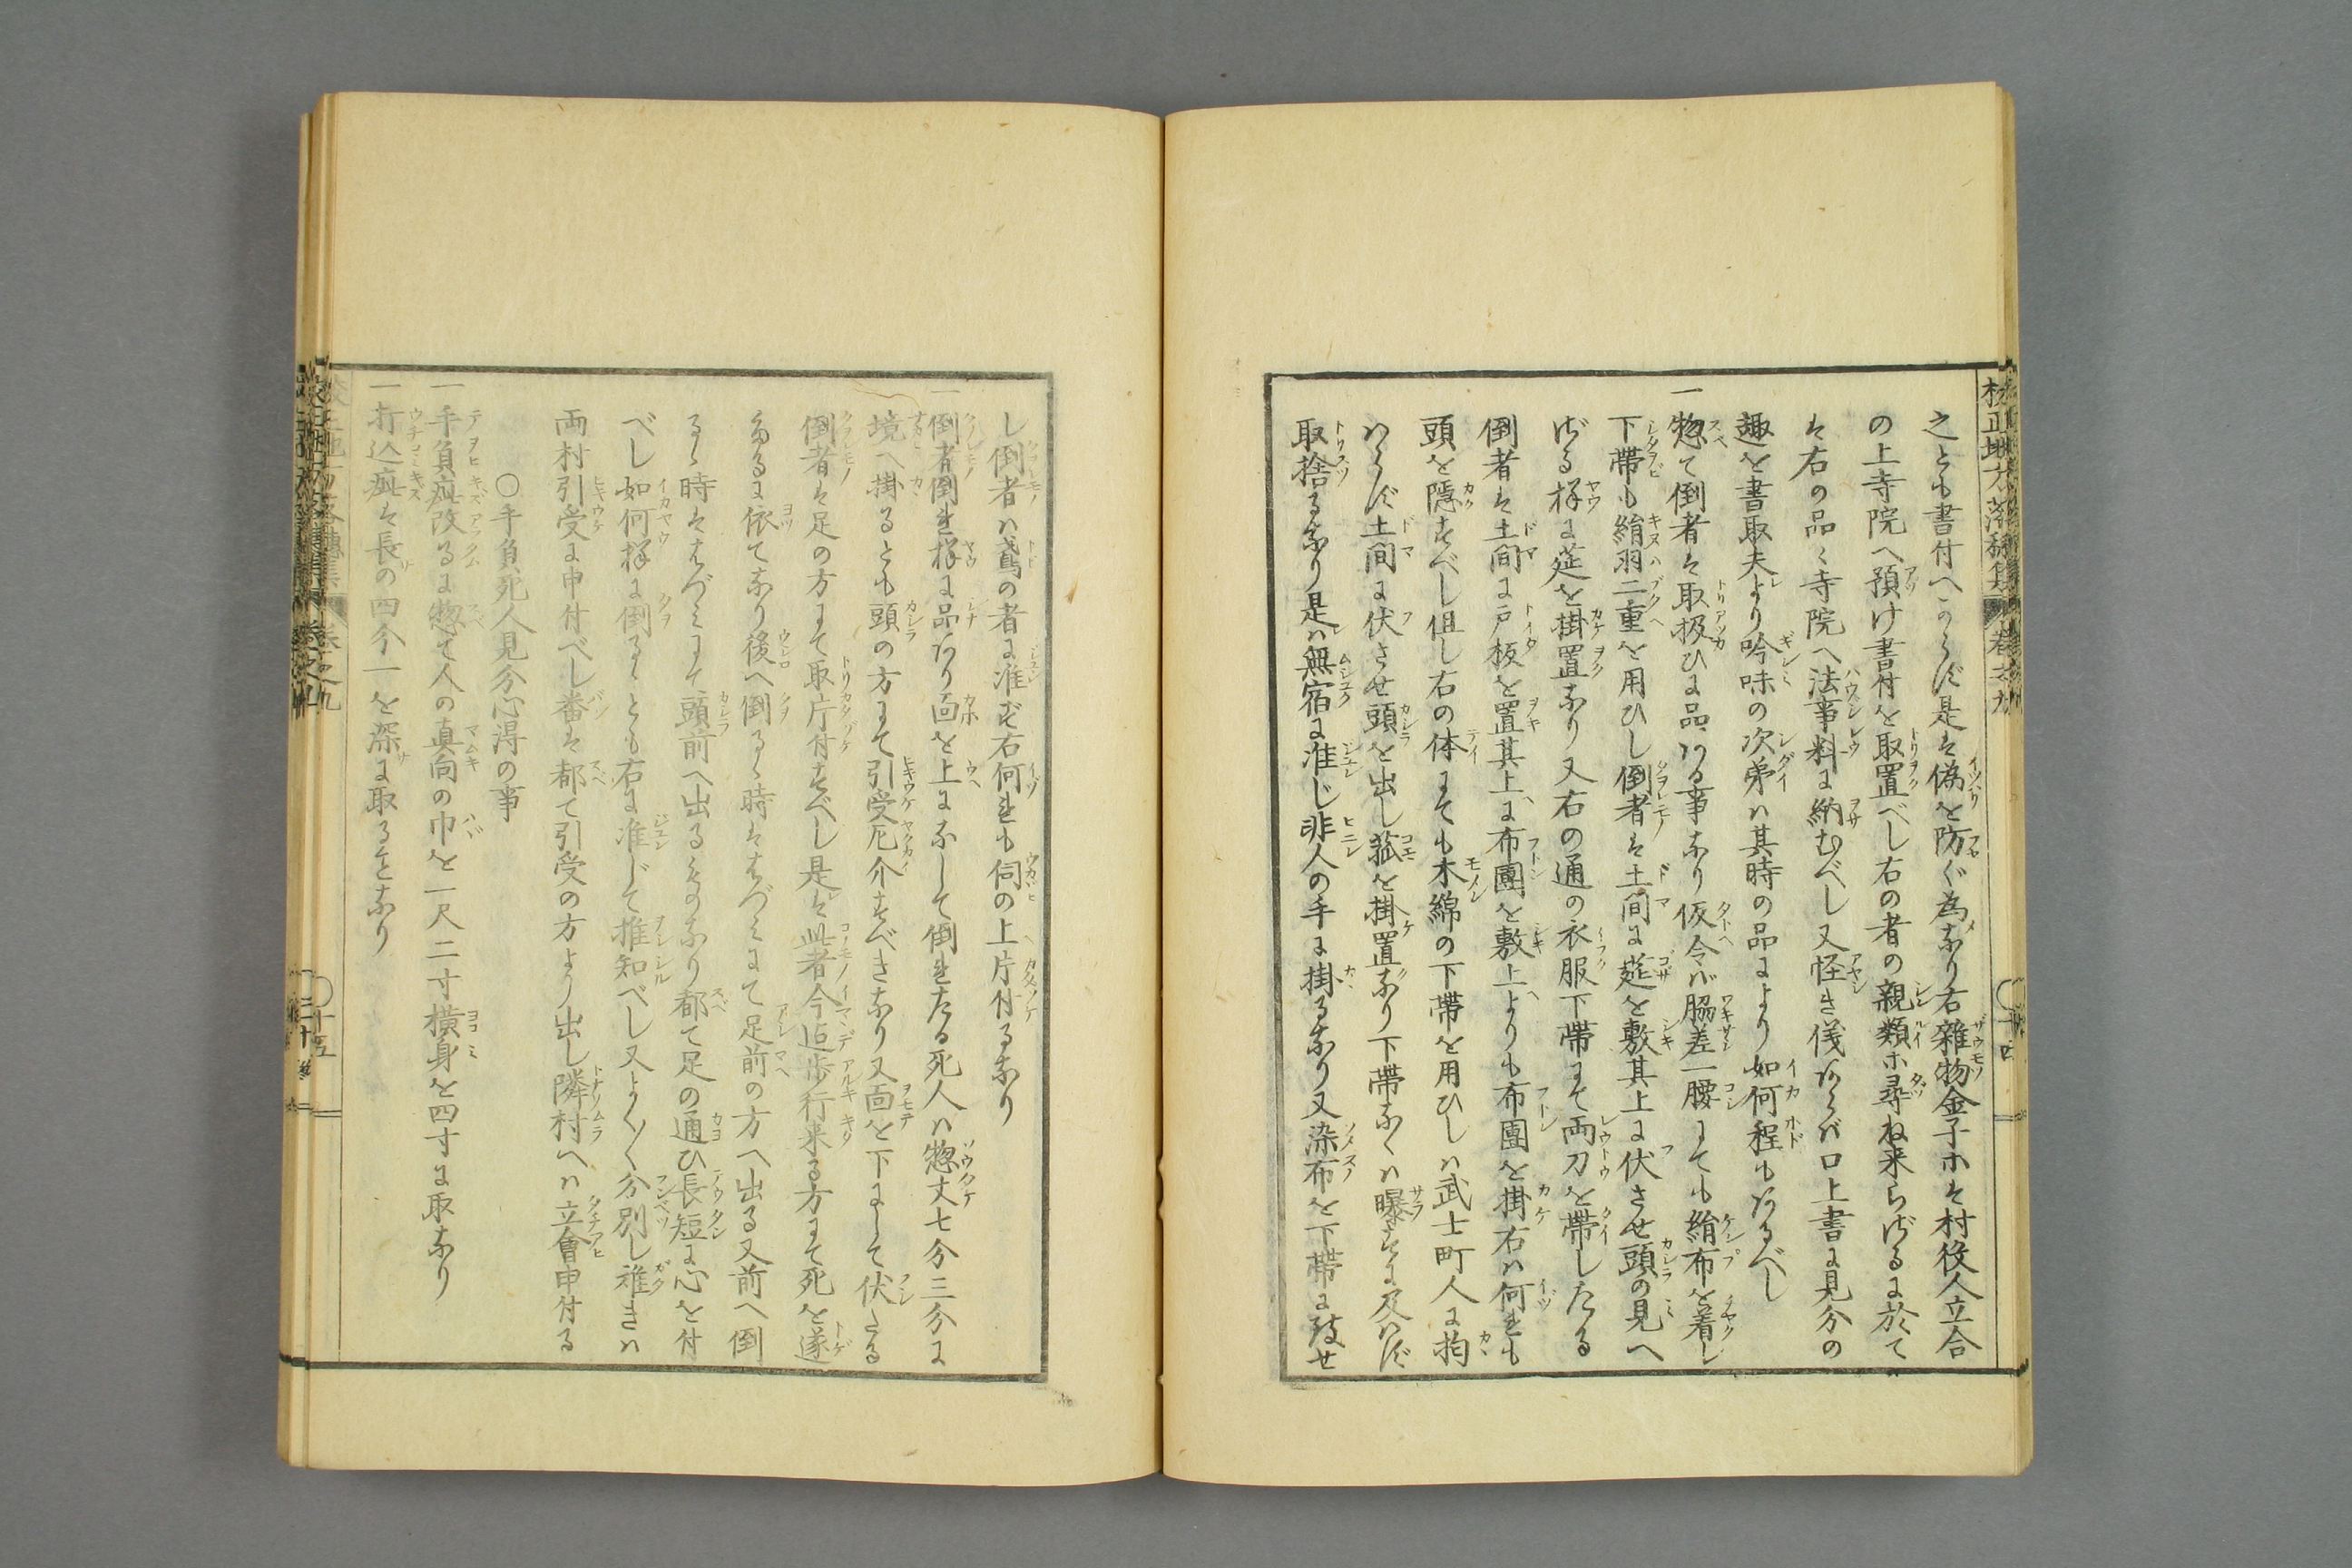 之とも書付へからず是を偽を防ぐ為なり右雑物金子ホを村役人立合
の上寺院へ預け書付を取置べし右の者の親類ホ尋ね来らざるに於て
を右の品々寺院へ法事料に納むべし又怪き儀あらバ口上書に見分の
趣を書取夫より吟味の次第ハ其時の品により如何程もあるべし
一惣て倒者を取扱ひに品ある事なり仮令バ脇差一腰にても絹布を着し
下帯も絹羽二重を用ひし倒者を土間に莚を敷其上に伏させ頭の見へ
ざる様に莚を掛置なり又右の通の衣服下帯にて両刀を帯したる
倒者を土間に戸板を置其上に布團を敷上よりも布團を掛右ハ何れも
頭を隠すべし但し右の体にても木綿の下帯を用ひしハ武士町人に拘
ハらず土間に伏させ頭を出し菰を掛置なり下帯なくハ曝すに及ハず
取捨るなり是ハ無宿に准じ非人の手に掛るなり又染布を下帯に致せ
し倒者ハ鳶の者に准ず右何れも伺の上片付るなり
一倒者倒れ様に品あり面を上になして倒れたる死人ハ惣丈七分三分に
境へ掛るとも頭の方にて引受厄介すべきなり又面を下にして伏たる
倒者を足の方にて取片付すべし是を此者今迠歩行来る方にて死を遂
たるに依てなり後へ倒るゝ時をはづミにて足前の方へ出る又前へ倒
るゝ時をはづミにて頭前へ出るものなり都て足の通ひ長短に心を付
べし如何様に倒るゝとも右に准じて推知べし又よく〳〵分別し難きハ
両村引受に申付べし番を都て引受の方より出し隣村へハ立會申付る
〇手負死人見分心得の事
一手負疵改るに惣て人の真向の巾を一尺二寸横身を四寸に取なり
一打込疵を長の四分一を深に取るをなり
校正地方落穂集 巻之九
〇十四
〇十五